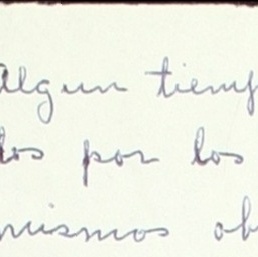 Algun tiemp
dos por los
mismos ob